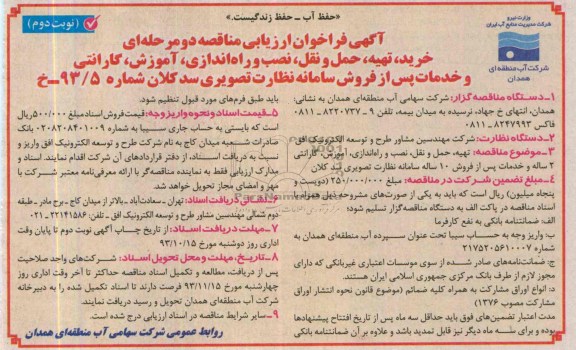 «حفظ آب ــ حفظ زندگیست.»
(نوبت دوم)
وزارت نیرو
شرکت مدیریت منابع آب ایران
شرکت آب منطقه‌ای
همدان
آگهی فراخوان ارزیابی مناقصه دومرحله‌ای
خرید، تهیه، حمل و نقل، نصب و راه‌اندازی، آموزش، گارانتی
و خدمات پس از فروش سامانه نظارت تصویری سد کلان شماره ۹۳/۵ــخ
۱ــ دستگاه مناقصه‌گزار: شرکت سهامی آب منطقه‌ای همدان به نشانی:
همدان، انتهای خ جهاد، نرسیده به میدان بیمه، تلفن ۹ ــ ۸۲۲۰۷۳۷ ــ ۰۸۱۱
فاکس ۸۲۴۷۹۹۳ ــ ۰۸۱۱
۲ــ دستگاه نظارت: شرکت مهندسین مشاور طرح و توسعه الکترونیک افق
۳ــ موضوع مناقصه: تهیه، حمل و نقل، نصب و راه‌اندازی، آموزش، گارانتی
۲ ساله و خدمات پس از فروش ۱۰ ساله سامانه نظارت تصویری سد کلان
۴ــ مبلغ تضمین شرکت در مناقصه: مبلغ ۲۵۰/۰۰۰/۰۰۰ (دویست و
پنجاه میلیون) ریال است که باید به یکی از صورت‌های مشروحه ذیل همراه با
اسناد مناقصه در پاکت الف به دستگاه مناقصه‌گزار تسلیم شود:
الف: ضمانتنامه بانکی به نفع کارفرما
ب: واریز وجه به حساب سیبا تحت عنوان سپرده آب منطقه‌ای همدان به
شماره ۲۱۷۵۲۰۵۶۱۰۰۰۷
ج: ضمانت‌نامه‌های صادر شده از سوی موسسات اعتباری غیربانکی که دارای
مجوز لازم از طرف بانک مرکزی جمهوری اسلامی ایران هستند.
د: انواع اوراق مشارکت به همراه کلیه ضمائم (موضوع قانون نحوه انتشار اوراق
مشارکت مصوب ۱۳۷۶)
مدت اعتبار تضمین‌های فوق باید حداقل سه ماه پس از تاریخ افتتاح پیشنهادها
بوده و برای سه ماه دیگر نیز قابل تمدید باشد و علاوه بر آن ضمانتنامه بانکی
باید طبق فرم‌های مورد قبول تنظیم شود.
۵ــ قیمت اسناد و نحوه واریز وجه: قیمت فروش اسناد مبلغ ۵۰۰/۰۰۰ ریال
است که بایستی به حساب جاری سیبا به شماره ۰۲۰۸۲۰۸۴۰۱۰۰۹ بانک
صادرات شعبه میدان کاج به نام شرکت طرح و توسعه الکترونیک افق واریز و
نسبت به دریافت اسناد، از دفتر قراردادهای آن شرکت اقدام نمایند. اسناد و
مدارک ارزیابی فقط به نماینده مناقصه‌گر با ارائه معرفی‌نامه معتبر شرکت با
مهر و امضای مجاز تحویل خواهد شد.
۶ــ محل دریافت اسناد: تهران ــ سعادت‌آباد ــ بالاتر از میدان کاج ــ برج مادر ــ طبقه
دوم شمالی مهندسین مشاور طرح و توسعه الکترونیک افق ــ تلفن: ۲۲۱۴۱۵۸۶ ــ ۰۲۱
۷ــ مهلت دریافت اسناد: از تاریخ چاپ آگهی نوبت دوم تا پایان وقت
اداری روز دوشنبه مورخ ۹۳/۱۰/۱۵
۸ــ تاریخ، مهلت و محل تحویل اسناد: شرکت‌های واجد صلاحیت
پس از دریافت، مطالعه و تکمیل اسناد مناقصه حداکثر تا آخر وقت اداری روز
چهارشنبه مورخ ۹۳/۱۱/۱۵ فرصت دارند تا اسناد تکمیل شده را به دبیرخانه
شرکت آب منطقه‌ای همدان تحویل و رسید دریافت نمایند.
۹ــ سایر شرایط مناقصه در اسناد ارزیابی درج شده است.
روابط عمومی شرکت سهامی آب منطقه‌ای همدان